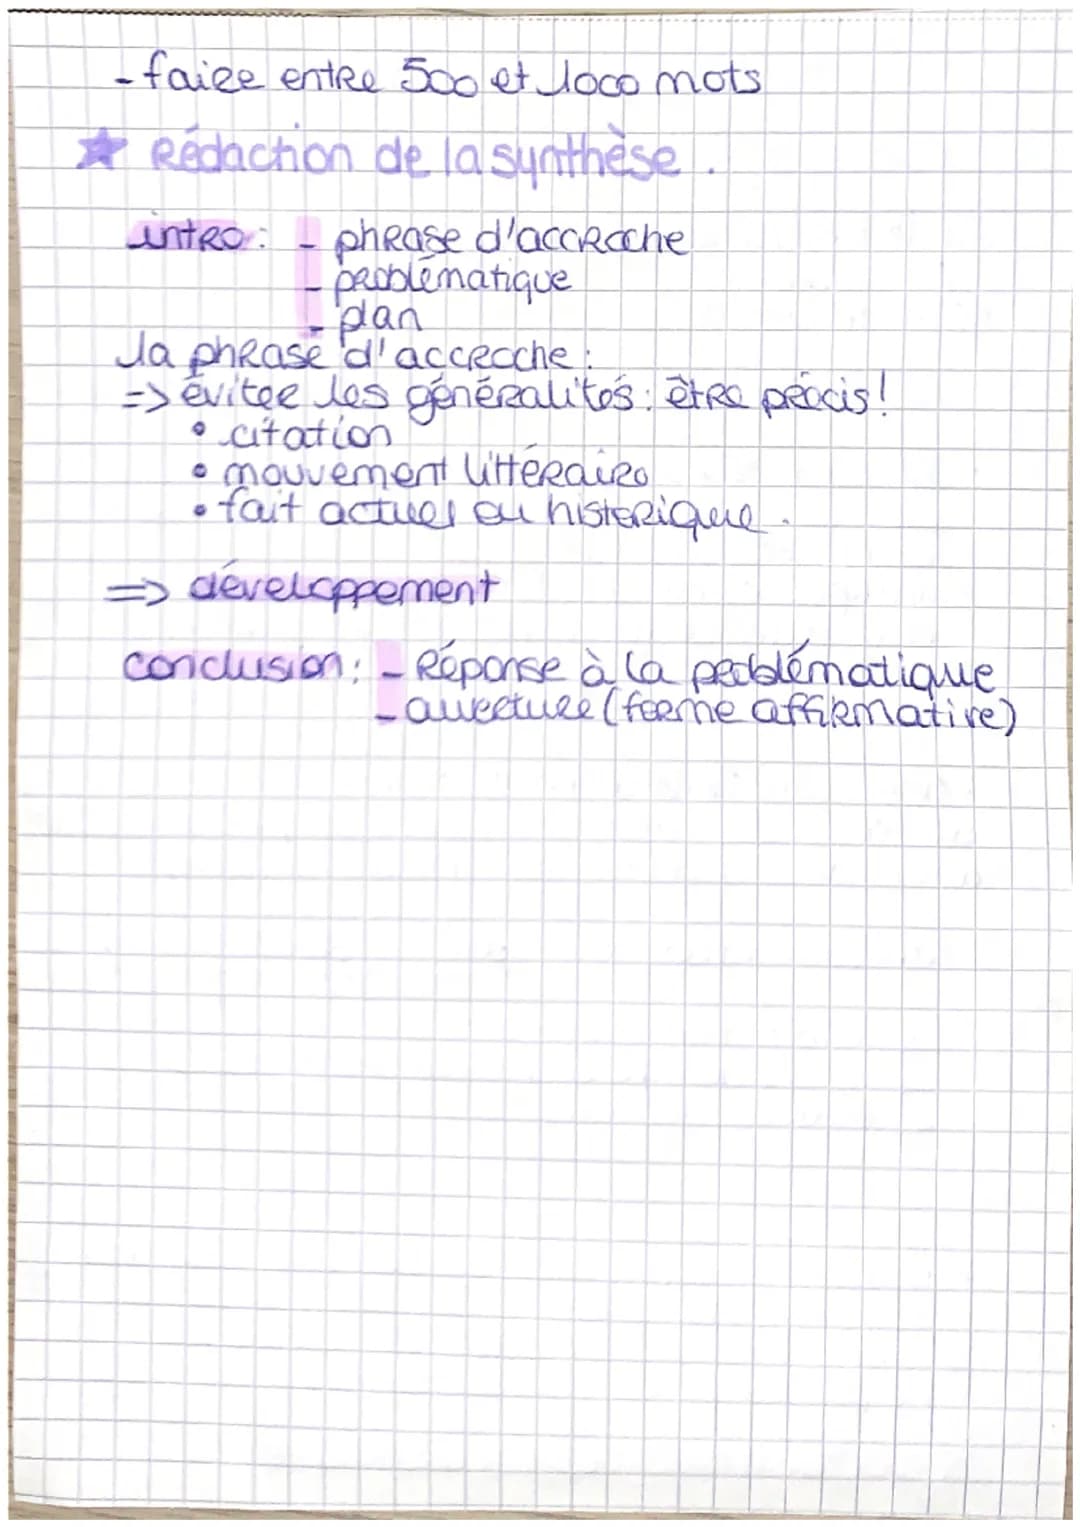 - faire entre 500 et 1000 mots
★ Rédaction de la synthèse.
intro: - phrase d'accroche
- problématique
- plan
la phrase d'accroche:
=> éviter les généralités: être précis!
• citation
• mouvement littéraire
• fait actuel ou historique.
=> développement
conclusion: - Réponse à la problématique
- ouverture (forme affirmative)